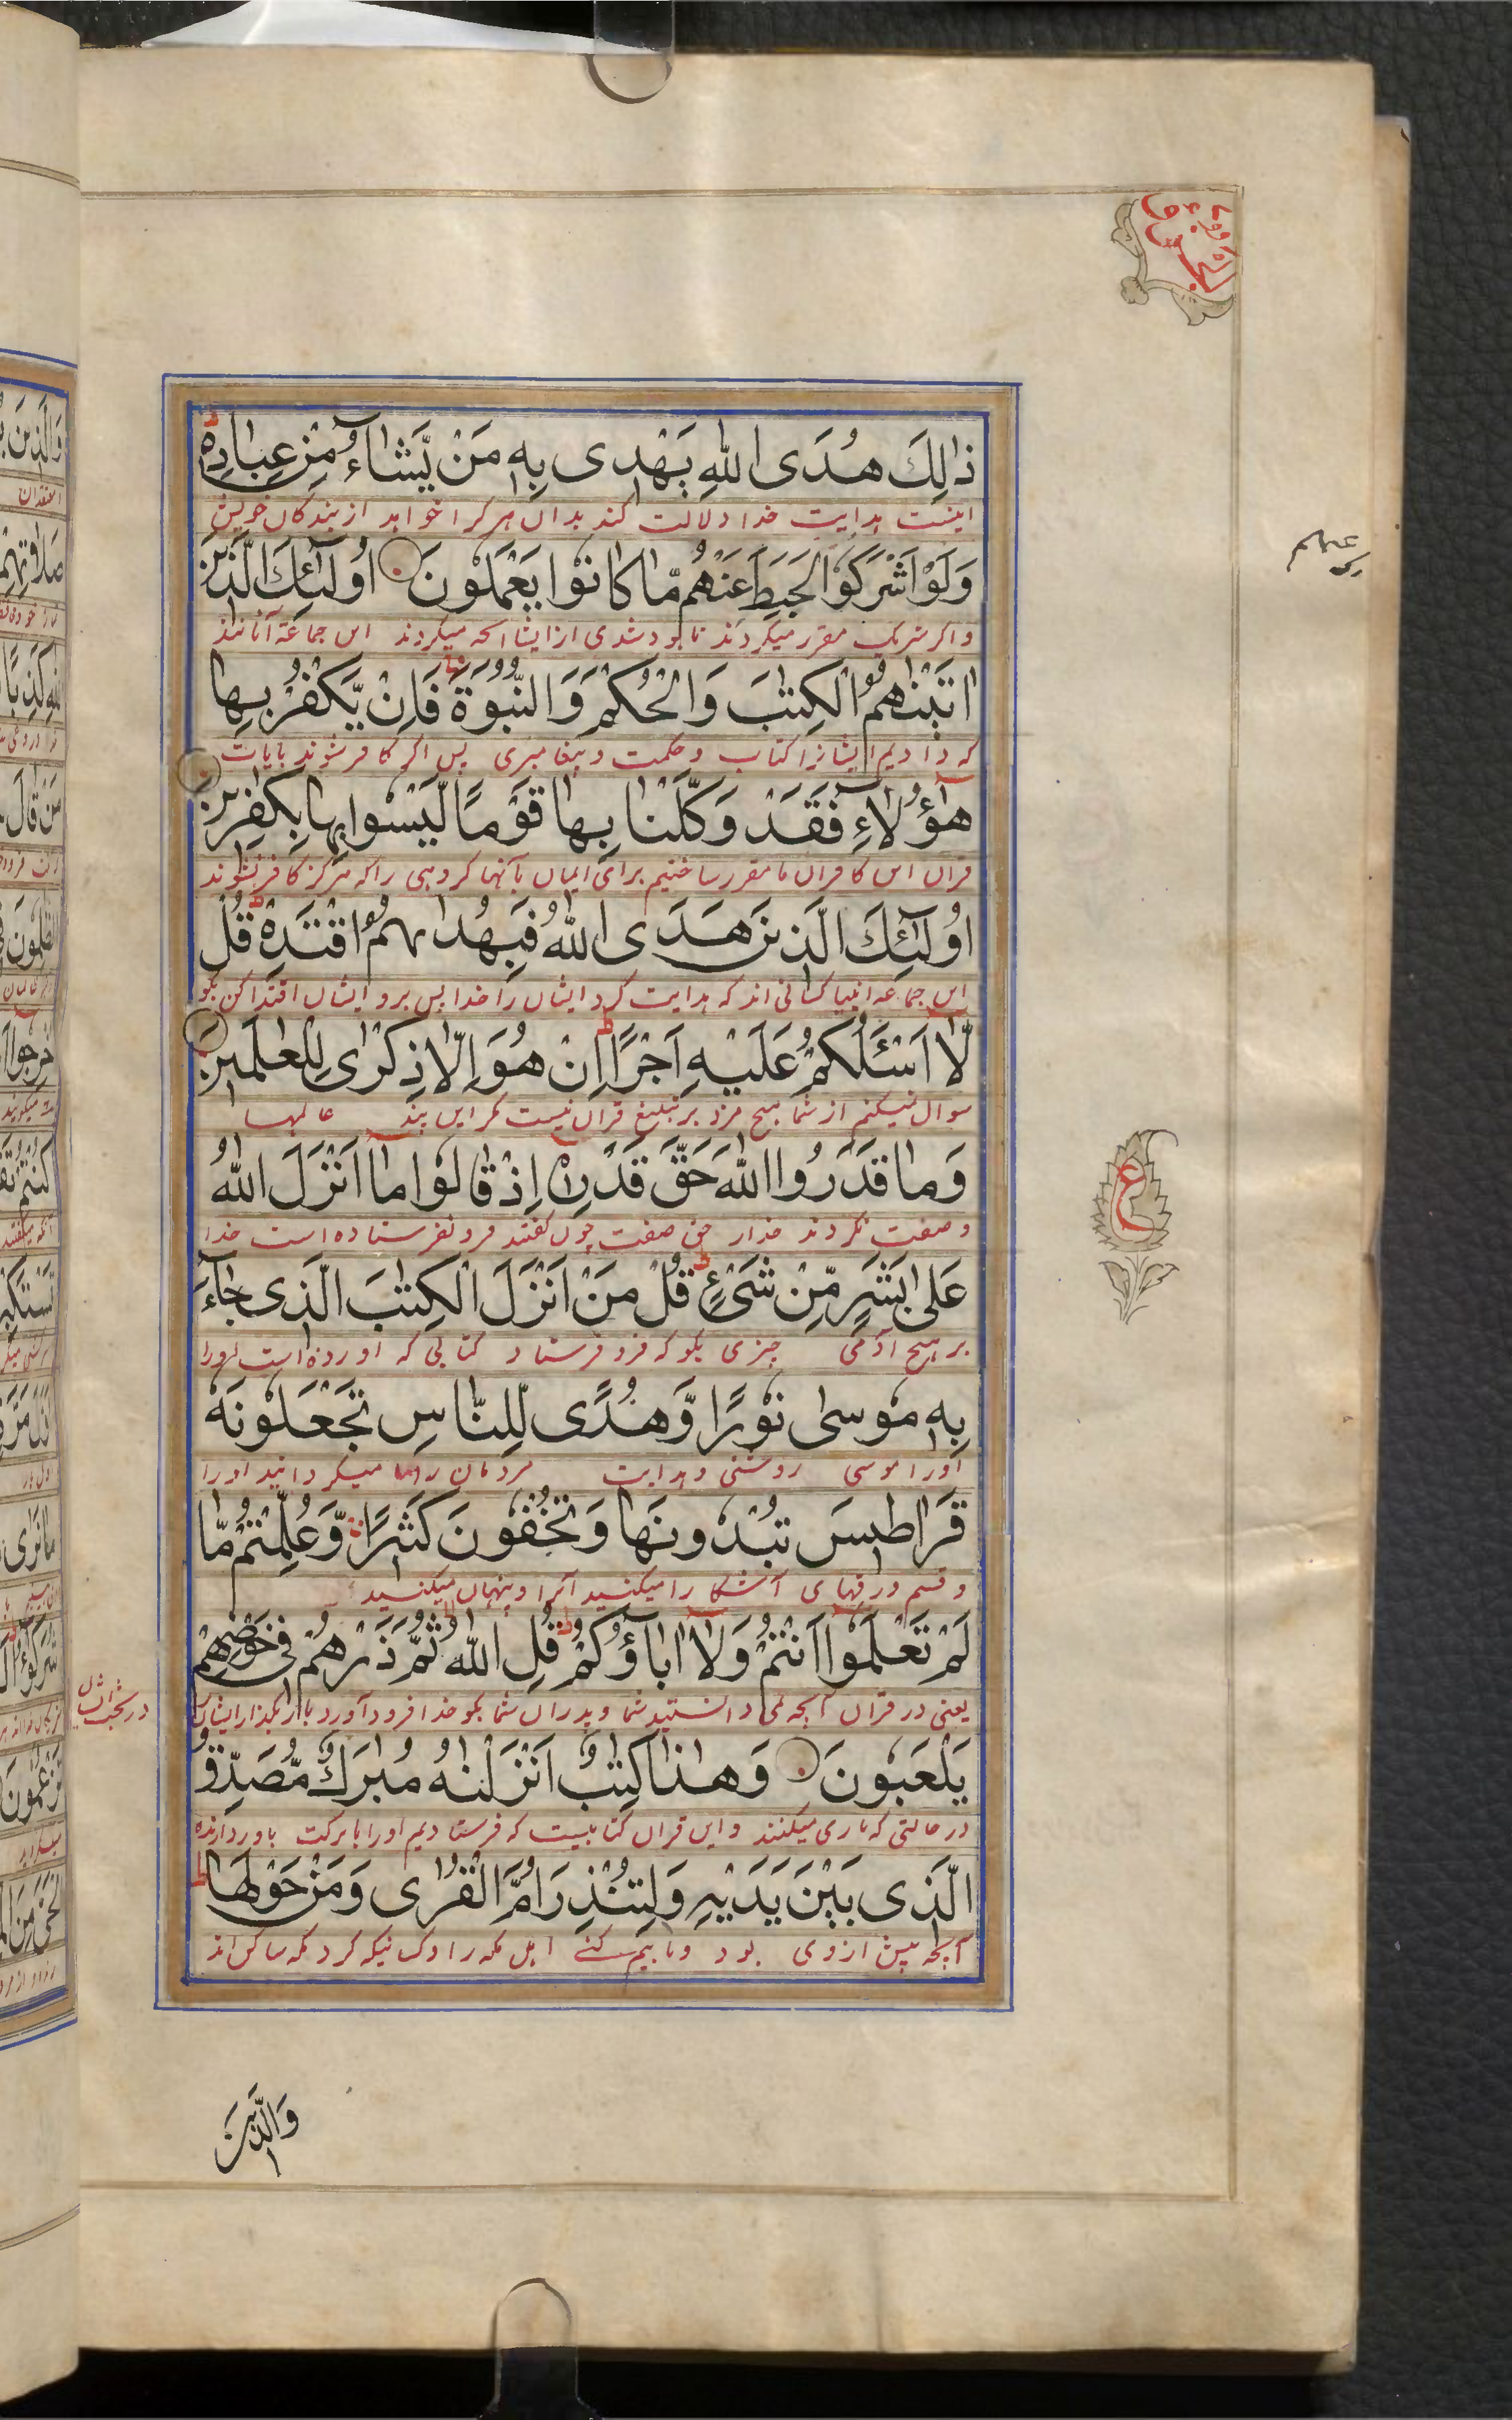 ذٰلِكَ هُدَى اللّٰهِ يَهْدِى بِهٖ مَنْ يَّشَآءُ مِنْ عِبَادِهٖ ط
اینست هدایت خدا دلالت کند بدان هر کرا خواهد از بندگان خویش
وَلَوْ اَشْرَكُوْا لَحَبِطَ عَنْهُمْ مَّا كَانُوْا يَعْمَلُوْنَ اُولٰٓئِكَ الَّذِيْنَ
واکر شریک مقرر میکردند نابود شدی از ایشان آنچه میکردند این جماعة آنانند
اٰتَيْنٰهُمُ الْكِتٰبَ وَالْحُكْمَ وَالنُّبُوَّةَ فَاِنْ يَّكْفُرْ بِهَا
که دادیم ایشانرا کتاب وحکمت وپیغامبری پس اکر کافر شوند بایات
هٰٓؤُلَآءِ فَقَدْ وَكَّلْنَا بِهَا قَوْمًا لَّيْسُوْا بِهَا بِكٰفِرِيْنَ
قران این کافران ما مقرر ساختیم برای ایمان بآنها کروهی راکه هرکز کافر نشوند
اُولٰٓئِكَ الَّذِيْنَ هَدَى اللّٰهُ فَبِهُدٰىهُمُ اقْتَدِهْ ط قُلْ
این جماعه انبیا کسانی اند که هدایت کرد ایشان را خدا پس بروی ایشان اقتدا کن بکو
لَّآ اَسْـَٔلُكُمْ عَلَيْهِ اَجْرًا ط اِنْ هُوَ اِلَّا ذِكْرٰى لِلْعٰلَمِيْنَ
سوال نمیکنم از شما هیچ مزد بر تبلیغ قران نیست مکر این پند عالمها
وَمَا قَدَرُوا اللّٰهَ حَقَّ قَدْرِهٖٓ اِذْ قَالُوْا مَآ اَنْزَلَ اللّٰهُ
وصفت نکردند خدارا حق صفت چون کفتند فرو نفرستاده است خدا
عَلٰى بَشَرٍ مِّنْ شَىْءٍ ط قُلْ مَنْ اَنْزَلَ الْكِتٰبَ الَّذِى جَآءَ
بر هیچ ادمی چیزی بکو که فرو فرستاد کتابی که اورده است
بِهٖ مُوْسٰى نُوْرًا وَّهُدًى لِّلنَّاسِ تَجْعَلُوْنَهٗ
اورا موسی روشنی وهدایت مردمان را میکردانید اورا
قَرَاطِيْسَ تُبْدُوْنَهَا وَتُخْفُوْنَ كَثِيْرًا وَّعُلِّمْتُمْ مَّا
وقسم ورقهای آشکارا میکنید آنرا وپنهان میکنید
لَمْ تَعْلَمُوْٓا اَنْتُمْ وَلَآ اٰبَآؤُكُمْ ط قُلِ اللّٰهُ ثُمَّ ذَرْهُمْ فِى خَوْضِهِمْ
یعنی در قران آنچه نمی دانستید شما وپدران شما بکو خدا فرود آورد باز بکذار ایشان
يَلْعَبُوْنَ وَهٰذَا كِتٰبٌ اَنْزَلْنٰهُ مُبٰرَكٌ مُّصَدِّقُ
در حالتی که بازی میکنند واین قران کتابیست که فرستادیم اورا بابرکت باوردارنده
الَّذِى بَيْنَ يَدَيْهِ وَلِتُنْذِرَ اُمَّ الْقُرٰى وَمَنْ حَوْلَهَا ط
آنچه پیش ازوی بود وتا بیم کنے اهل مکه را وکسانیکه کرد مکه ساکن اند
ع
وَالَّذِيْنَ